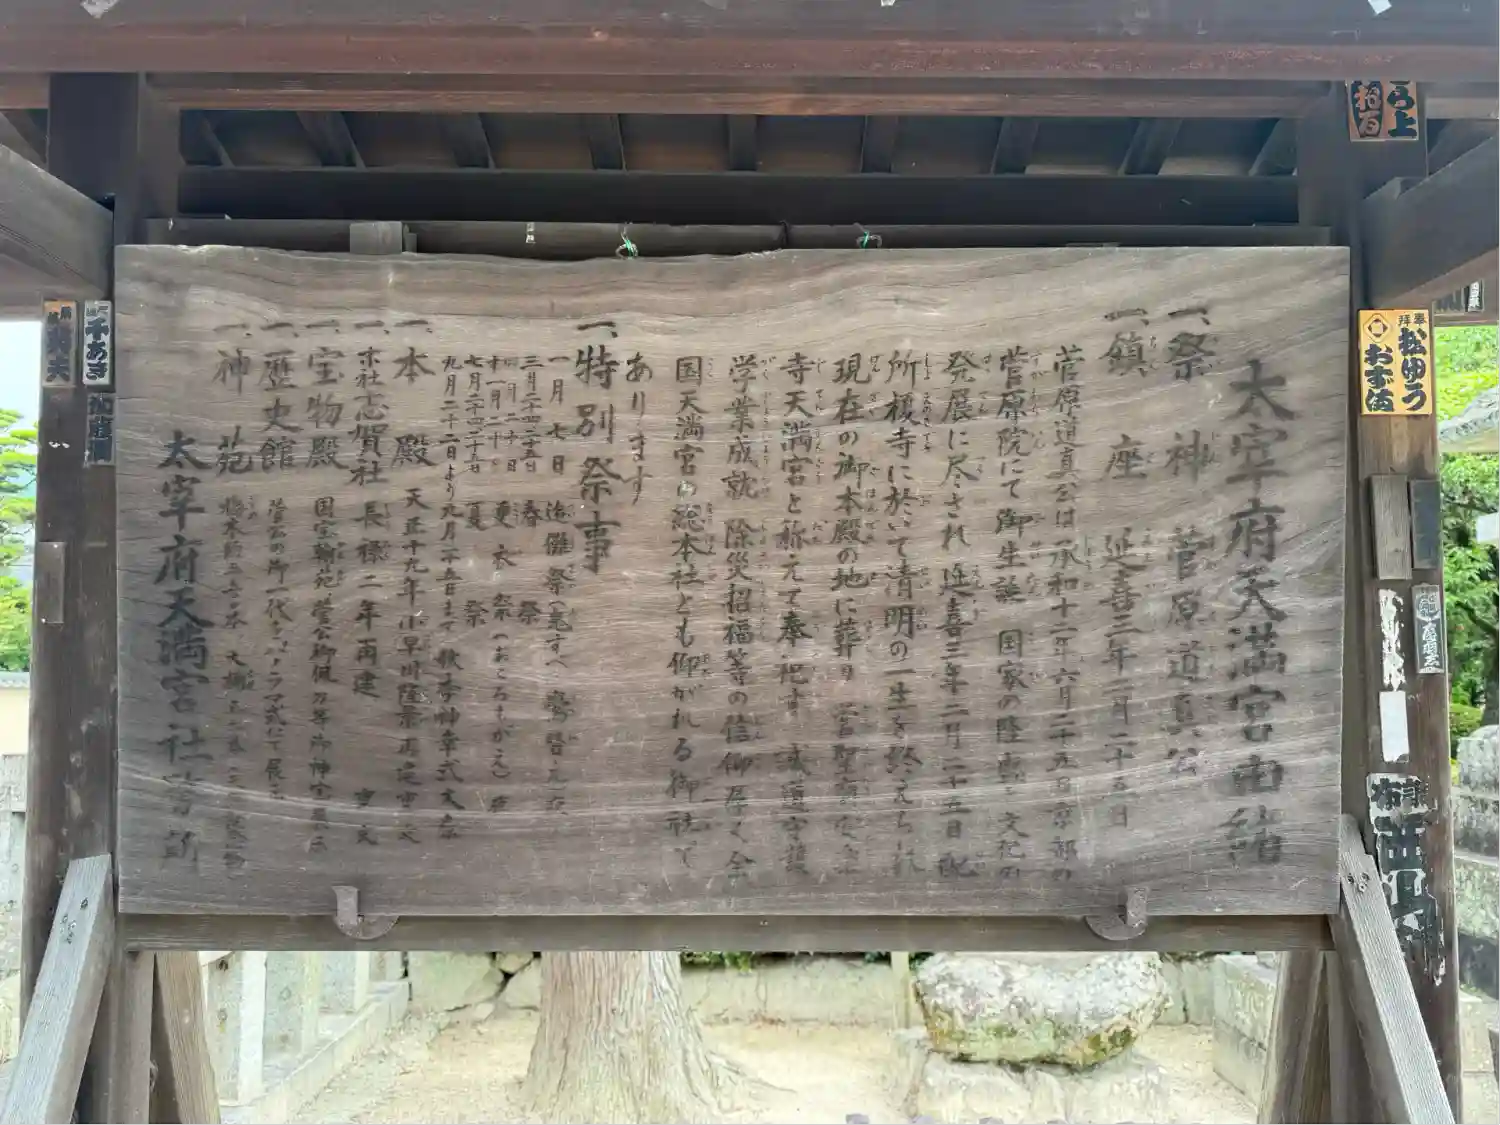 太宰府天満宮由緒
一、祭神 菅原道真公
一、鎮座 延喜三年二月二十五日
菅原道真公は承和十二年六月二十五日京都の
菅原院にて御生誕 国家の隆恵と文化の
発展に尽され 延喜三年二月二十五日 配
所榎寺に於いて清明の一生を終えられ
現在の御本殿の地に葬り 菅聖廟安楽
寺天満宮と称えて奉祀す 至誠守護
学業成就 除災招福等の信仰厚く全
国天満宮の総本社とも仰がれる御社で
あります
一、特別祭事
一月七日 追儺祭(鬼すべ 鷽替え)夜
三月二十四・二十五日 春祭
四月二十日 十一月二十日 更衣祭(おころもがえ)夜
七月二十四・二十五日 夏祭
九月二十二日より九月二十五日まで 秋季神幸式大祭
一、本殿 天正十九年小早川隆景再建 重文
一、末社志賀社 長禄二年再建 重文
一、宝物殿 国宝翰苑 菅公御佩刀等御神宝展示
一、歴史館 菅公の御一代をパノラマ式にて展示
一、神苑
太宰府天満宮社務所
松ゆう
おずほ
奉
拝
千あき